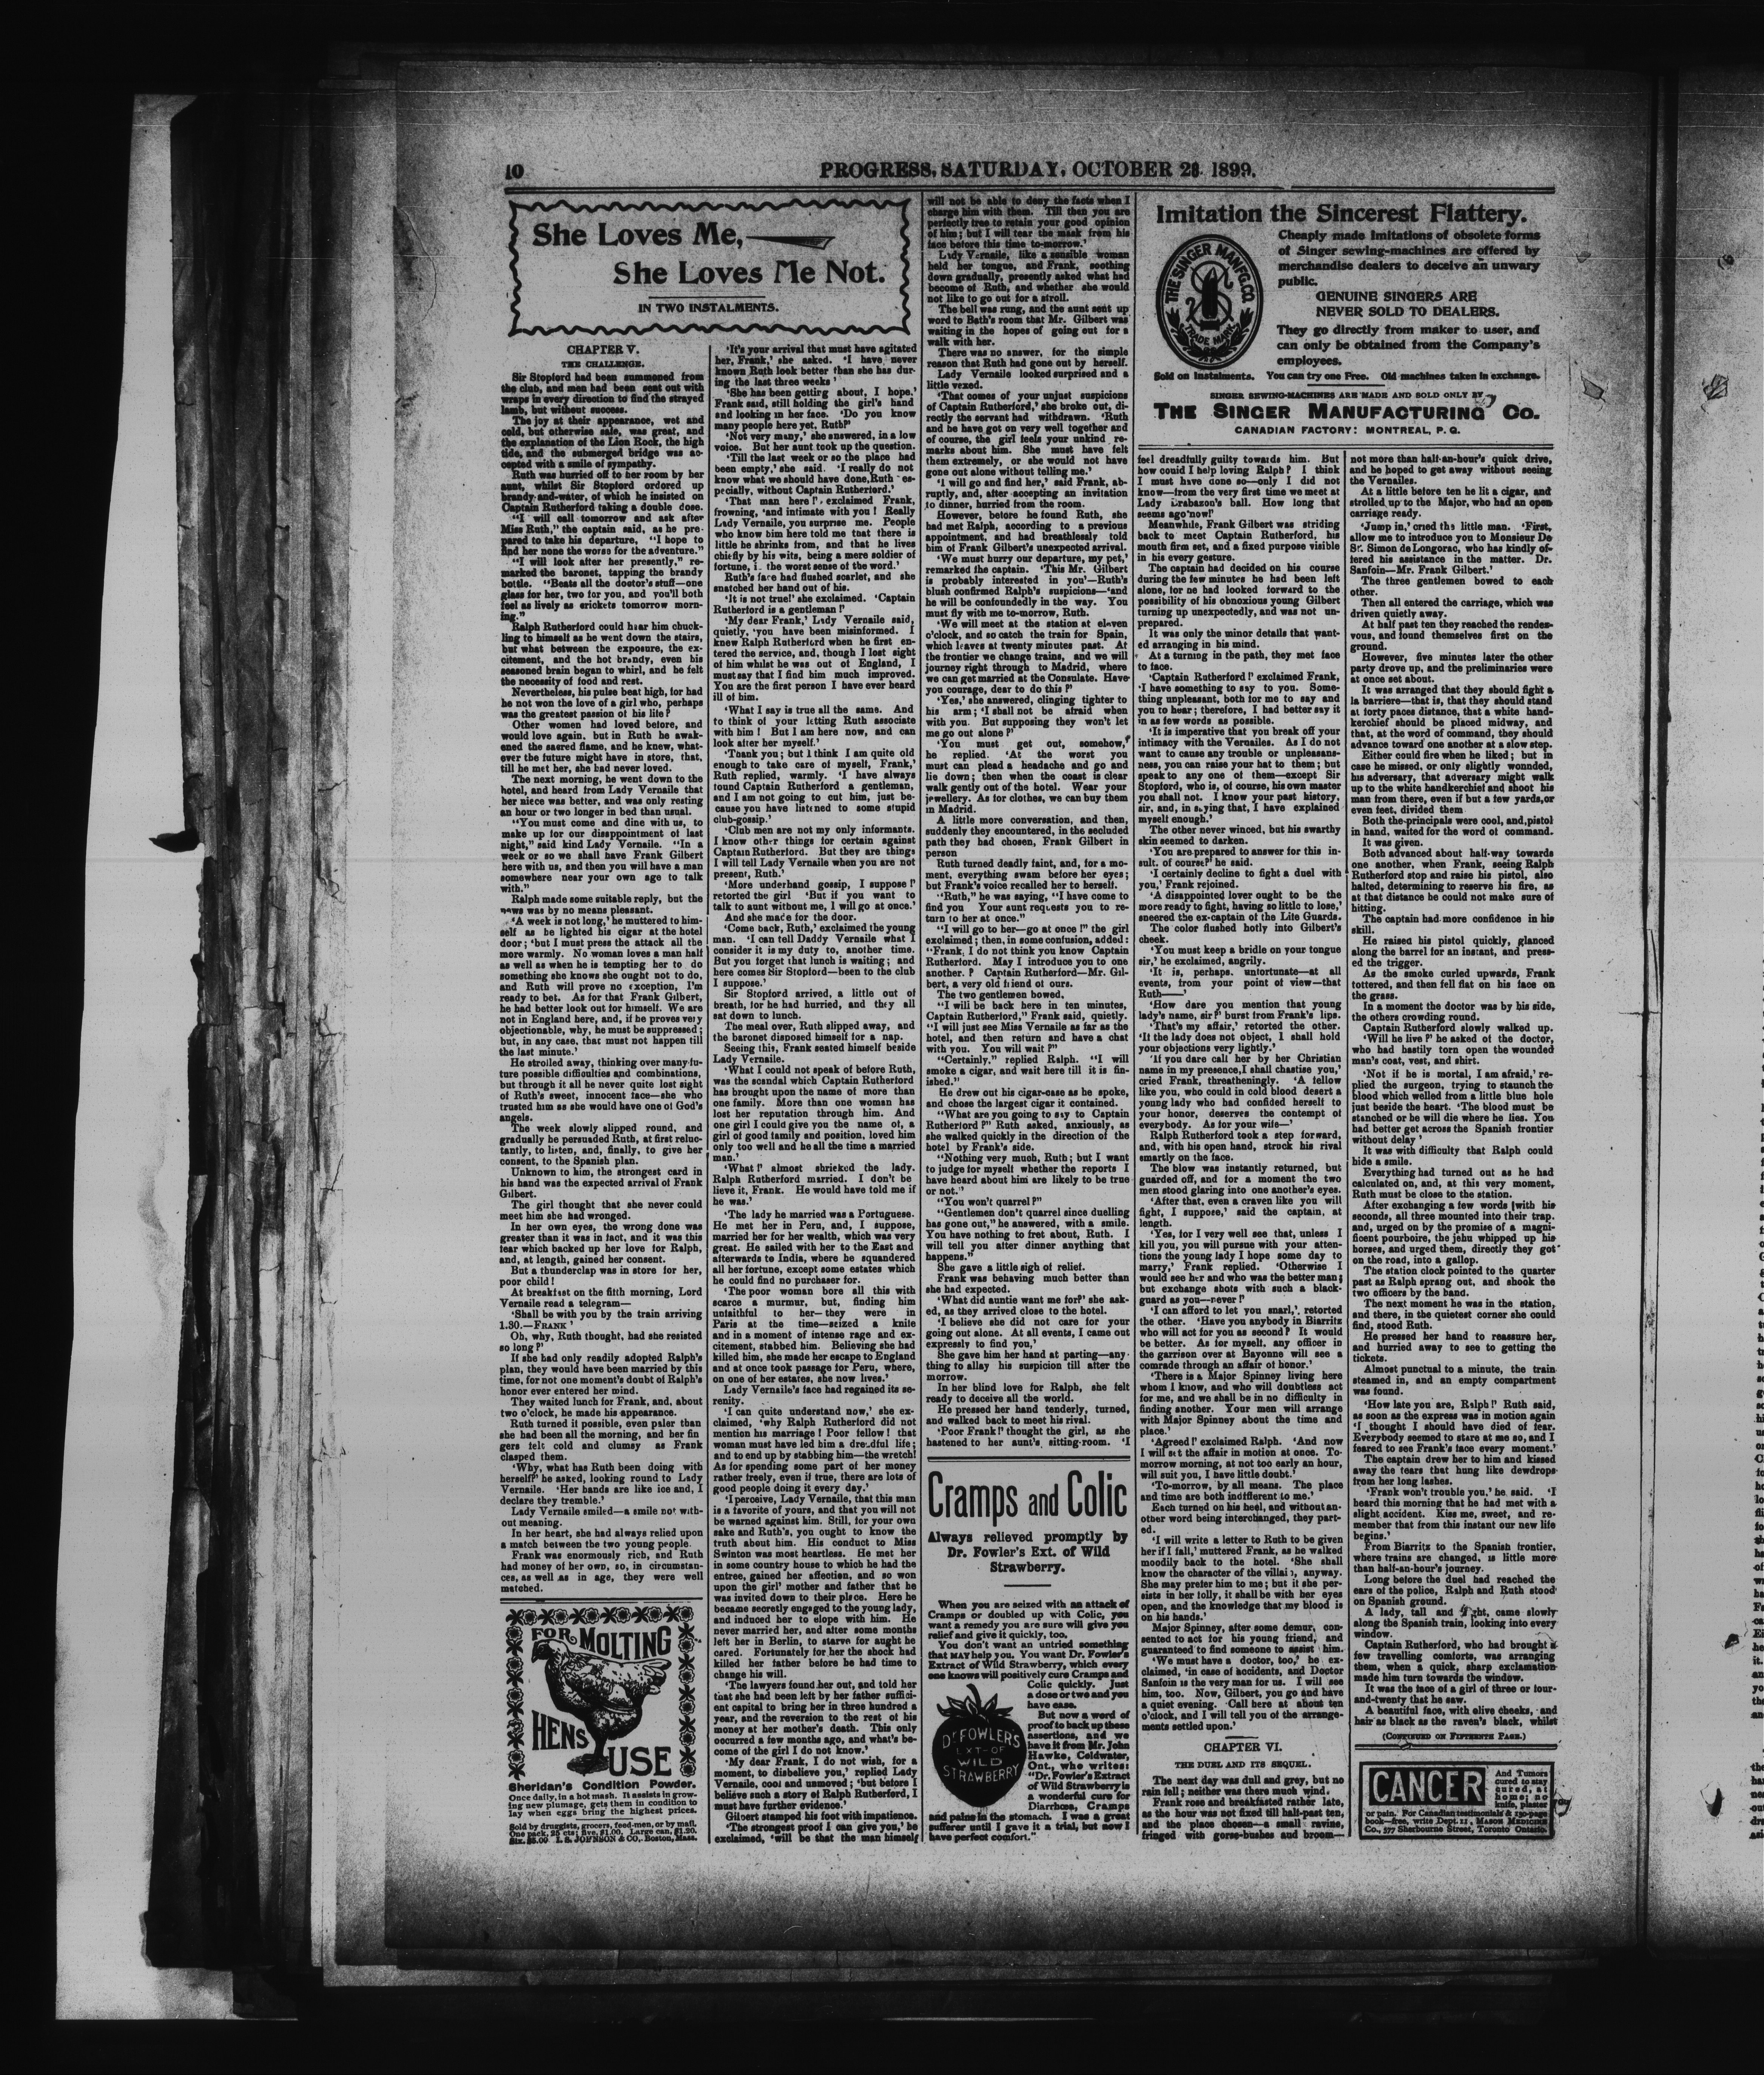 10
PROGRESS, SATURDAY, OCTOBER 28. 1899.
She Loves Me,
She Loves Me Not.
IN TWO INSTALMENTS.
CHAPTER V.
THE CHALLENGE.
Sir Stopford had been summoned from
the club, and men had been sent out with
wraps in every direction to find the strayed
lamb, but without success.
The joy at their appearance, wet and
cold, but otherwise safe, was great, and
the explanation of the Lion Rock, the high
tide, and the submerged bridge was ac-
cepted with a smile of sympathy.
Ruth was hurried off to her room by her
aunt, whilst Sir Stopford ordered up
brandy-and-water, of which he insisted on
Captain Rutherford taking a double dose.
"I will call tomorrow and ask after
Miss Ruth," the captain said, as he pre-
pared to take his departure, "I hope to
find her none the worse for the adventure."
"I will look after her presently," re-
marked the baronet, tapping the brandy
bottle. "Beats all the doctor's stuff—one
glass for her, two for you, and you'll both
feel as lively as crickets tomorrow morn-
ing."
Ralph Rutherford could hear him chuck-
ling to himself as he went down the stairs,
but what between the exposure, the ex-
citement, and the hot brandy, even his
seasoned brain began to whirl, and he felt
the necessity of food and rest.
Nevertheless, his pulse beat high, for had
he not won the love of a girl who, perhaps
was the greatest passion of his life?
Other women had loved before, and
would love again, but in Ruth he awak-
ened the sacred flame, and he knew, what-
ever the future might have in store, that,
till he met her, she had never loved.
The next morning, he went down to the
hotel, and heard from Lady Vernaile that
her niece was better, and was only resting
an hour or two longer in bed than usual.
"You must come and dine with us, to
make up for our disappointment of last
night," said kind Lady Vernaile. "In a
week or so we shall have Frank Gilbert
here with us, and then you will have a man
somewhere near your own age to talk
with."
Ralph made some suitable reply, but the
news was by no means pleasant.
'A week is not long,' he muttered to him-
self as be lighted his cigar at the hotel
door; 'but I must press the attack all the
more warmly. No woman loves a man half
as well as when he is tempting her to do
something she knows she ought not to do,
and Ruth will prove no exception, I'm
ready to bet. As for that Frank Gilbert,
he had better look out for himself. We are
not in England here, and, if he proves very
objectionable, why, he must be suppressed;
but, in any case, that must not happen till
the last minute.'
He strolled away, thinking over many fu-
ture possible difficulties and combinations,
but through it all he never quite lost sight
of Ruth's sweet, innocent face—she who
trusted him as she would have one of God's
angels.
The week slowly slipped round, and
gradually be persuaded Ruth, at first reluc-
tantly, to listen, and, finally, to give her
consent, to the Spanish plan.
Unknown to him, the strongest card in
his hand was the expected arrival of Frank
Gilbert.
The girl thought that she never could
meet him she had wronged.
In her own eyes, the wrong done was
greater than it was in fact, and it was this
fear which backed up her love for Ralph,
and, at length, gained her consent.
But a thunderclap was in store for her,
poor child!
At breakfast on the fifth morning, Lord
Vernaile read a telegram—
'Shall be with you by the train arriving
1.30.—FRANK'
Oh, why, Ruth thought, had she resisted
so long?'
If she had only readily adopted Ralph's
plan, they would have been married by this
time, for not one moment's doubt of Ralph's
honor ever entered her mind.
They waited lunch for Frank, and, about
two o'clock, he made his appearance.
Ruth turned if possible, even paler than
she had been all the morning, and her fin
gers felt cold and clumsy as Frank
clasped them.
'Why, what has Ruth been doing with
herself?' he asked, looking round to Lady
Vernaile. 'Her bands are like ice and, I
declare they tremble.'
Lady Vernaile smiled—a smile not with-
out meaning.
In her heart, she had always relied upon
a match between the two young people.
Frank was enormously rich, and Ruth
had money of her own, so, in circumstan-
ces, as well as in age, they were well
matched.
FOR MOLTING
HENS
USE
Sheridan's Condition Powder.
Once daily, in a hot mash. It assists in grow-
ing new plumage, gets them in condition to
lay when eggs bring the highest prices.
Sold by druggists, grocers, feed-men, or by mail.
One pack, 25 cts; five, $1.00. Large can, $1.20.
Six, $5.00. I. S. JOHNSON & CO., Boston, Mass.
'It's your arrival that must have agitated
her, Frank,' she asked. 'I have never
known Ruth look better than she has dur-
ing the last three weeks'
'She has been getting about, I hope.'
Frank said, still holding the girl's hand
and looking in her face. 'Do you know
many people here yet, Ruth?'
'Not very many,' she answered, in a low
voice. But her aunt took up the question.
'Till the last week or so the place had
been empty,' she said. 'I really do not
know what we should have done, Ruth es-
pecially, without Captain Rutherford.'
'That man here!' exclaimed Frank,
frowning, 'and intimate with you! Really
Lady Vernaile, you surprise me. People
who know him here told me that there is
little be shrinks from, and that he lives
chiefly by his wits, being a mere soldier of
fortune, in the worst sense of the word.'
Ruth's face had flushed scarlet, and she
snatched her hand out of his.
'It is not true!' she exclaimed. 'Captain
Rutherford is a gentleman!'
'My dear Frank,' Lady Vernaile said,
quietly, 'you have been misinformed. I
knew Ralph Rutherford when he first en-
tered the service, and, though I lost sight
of him whilst he was out of England, I
must say that I find him much improved.
You are the first person I have ever beard
ill of him.
'What I say is true all the same. And
to think of your letting Ruth associate
with him! But I am here now, and can
look after her myself.'
'Thank you; but I think I am quite old
enough to take care of myself, Frank,'
Ruth replied, warmly. 'I have always
found Captain Rutherford a gentleman,
and I am not going to cut him, just be-
cause you have listened to some stupid
club-gossip.'
'Club men are not my only informants.
I know other things for certain against
Captain Rutherford. But they are things
I will tell Lady Vernaile when you are not
present, Ruth.'
'More underhand gossip, I suppose!'
retorted the girl 'But if you want to
talk to aunt without me, I will go at once.'
And she made for the door.
'Come back, Ruth,' exclaimed the young
man. 'I can tell Daddy Vernaile what I
consider it is my duty to, another time.
But you forget that lunch is waiting; and
here comes Sir Stopford—been to the club
I suppose.'
Sir Stopford arrived, a little out of
breath, for he had hurried, and they all
sat down to lunch.
The meal over, Ruth slipped away, and
the baronet disposed himself for a nap.
Seeing this, Frank seated himself beside
Lady Vernaile.
'What I could not speak of before Ruth,
was the scandal which Captain Rutherford
has brought upon the name of more than
one family. More than one woman has
lost her reputation through him. And
one girl I could give you the name of, a
girl of good family and position, loved him
only too well and he all the time a married
man.'
'What!' almost shrieked the lady.
Ralph Rutherford married. I don't be
lieve it, Frank. He would have told me if
he was.'
'The lady he married was a Portuguese.
He met her in Peru, and, I suppose,
married her for her wealth, which was very
great. He sailed with her to the East and
afterwards to India, where be squandered
all her fortune, except some estates which
be could find no purchaser for.
'The poor woman bore all this with
scarce a murmur, but, finding him
unfaithful to her—they were in
Paris at the time—seized a knife
and in a moment of intense rage and ex-
citement, stabbed him. Believing she had
killed him, she made her escape to England
and at once took passage for Peru, where,
on one of her estates, she now lives.'
Lady Vernaile's face had regained its se-
renity.
'I can quite understand now,' she ex-
claimed, 'why Ralph Rutherford did not
mention his marriage! Poor fellow! that
woman must have led him a dreadful life;
and to end up by stabbing him—the wretch!
As for spending some part of her money
rather freely, even if true, there are lots of
good people doing it every day.'
'I perceive, Lady Vernaile, that this man
is a favorite of yours, and that you will not
be warned against him. Still, for your own
sake and Ruth's, you ought to know the
truth about him. His conduct to Miss
Swinton was most heartless. He met her
in some country house to which he had the
entree, gained her affection, and so won
upon the girl' mother and father that he
was invited down to their place. Here he
became secretly engaged to the young lady,
and induced her to elope with him. He
never married her, and after some months
left her in Berlin, to starve for aught he
cared. Fortunately for her the shock had
killed her father before he had time to
change his will.
'The lawyers found her out, and told her
that she had been left by her father suffici-
ent capital to bring her in three hundred a
year, and the reversion to the rest of his
money at her mother's death. This only
occurred a few months ago, and what's be-
come of the girl I do not know.'
'My dear Frank, I do not wish, for a
moment, to disbelieve you,' replied Lady
Vernaile, cool and unmoved; 'but before I
believe such a story of Ralph Rutherford, I
must have further evidence.'
Gilbert stamped his foot with impatience.
'The strongest proof I can give you,' be
exclaimed, 'will be that the man himself
will not be able to deny the facts when I
charge him with them. Till then you are
perfectly free to retain your good opinion
of him; but I will tear the mask from his
face before this time to-morrow.'
Lady Vernaile, like a sensible woman
held her tongue, and Frank, soothing
down gradually, presently asked what had
become of Ruth, and whether she would
not like to go out for a stroll.
The bell was rung, and the aunt sent up
word to Bath's room that Mr. Gilbert was
waiting in the hopes of going out for a
walk with her.
There was no answer, for the simple
reason that Ruth had gone out by herself.
Lady Vernaile looked surprised and a
little vexed.
'That comes of your unjust suspicions
of Captain Rutherford,' she broke out, di-
rectly the servant had withdrawn. 'Ruth
and be have got on very well together and
of course, the girl feels your unkind re-
marks about him. She must have felt
them extremely, or she would not have
gone out alone without telling me.'
'I will go and find her,' said Frank, ab-
ruptly, and, after accepting an invitation
to dinner, hurried from the room.
However, before he found Ruth, she
had met Ralph, according to a previous
appointment, and had breathlessly told
him of Frank Gilbert's unexpected arrival.
'We must hurry our departure, my pet,'
remarked the captain. 'This Mr. Gilbert
is probably interested in you'—Ruth's
blush confirmed Ralph's suspicions—'and
he will be confoundedly in the way. You
must fly with me to-morrow, Ruth.
'We will meet at the station at eleven
o'clock, and so catch the train for Spain,
which leaves at twenty minutes past. At
the frontier we change trains, and we will
journey right through to Madrid, where
we can get married at the Consulate. Have
you courage, dear to do this?'
'Yes,' she answered, clinging tighter to
his arm; 'I shall not be afraid when
with you. But supposing they won't let
me go out alone?'
'You must get out, somehow,'
be replied. 'At the worst you
must can plead a headache and go and
lie down; then when the coast is clear
walk gently out of the hotel. Wear your
jewellery. As for clothes, we can buy them
in Madrid.
A little more conversation, and then,
suddenly they encountered, in the secluded
path they had chosen, Frank Gilbert in
person
Ruth turned deadly faint, and, for a mo-
ment, everything swam before her eyes;
but Frank's voice recalled her to herself.
"Ruth," he was saying, "I have come to
find you Your aunt requests you to re-
turn to her at once."
"I will go to her—go at once!" the girl
exclaimed; then, in some confusion, added:
"Frank, I do not think you know Captain
Rutherford. May I introduce you to one
another.? Captain Rutherford—Mr. Gil-
bert, a very old friend of ours.
The two gentlemen bowed.
"I will be back here in ten minutes,
Captain Rutherford," Frank said, quietly.
"I will just see Miss Vernaile as far as the
hotel, and then return and have a chat
with you. You will wait?"
"Certainly." replied Ralph. "I will
smoke a cigar, and wait here till it is fin-
ished."
He drew out his cigar-case as be spoke,
and chose the largest cigar it contained.
"What are you going to say to Captain
Rutherford?" Ruth asked, anxiously, as
she walked quickly in the direction of the
hotel by Frank's side.
"Nothing very much, Ruth; but I want
to judge for myself whether the reports I
have heard about him are likely to be true
or not."
"You won't quarrel?"
"Gentlemen don't quarrel since duelling
has gone out," he answered, with a smile.
You have nothing to fret about, Ruth. I
will tell you after dinner anything that
happens."
She gave a little sigh of relief.
Frank was behaving much better than
she had expected.
'What did auntie want me for?' she ask-
ed, as they arrived close to the hotel.
'I believe she did not care for your
going out alone. At all events, I came out
expressly to find you,'
She gave him her hand at parting—any-
thing to allay his suspicion till after the
morrow.
In her blind love for Ralph, she felt
ready to deceive all the world.
He pressed her hand tenderly, turned,
and walked back to meet his rival.
'Poor Frank!' thought the girl, as she
hastened to her aunt's sitting-room. 'I
Cramps and Colic
Always relieved promptly by
Dr. Fowler's Ext. of Wild
Strawberry.
When you are seized with an attack of
Cramps or doubled up with Colic, you
want a remedy you are sure will give you
relief and give it quickly, too.
You don't want an untried something
that MAY help you. You want Dr. Fowler's
Extract of Wild Strawberry, which every
one knows will positively cure Cramps and
Colic quickly. Just
a dose or two and you
have ease.
But now a word of
proof to back up these
assertions, and we
have it from Mr. John
Hawke, Coldwater,
Ont., who writes:
"Dr. Fowler's Extract
of Wild Strawberry is
a wonderful cure for
Diarrhœa, Cramps
and pains in the stomach. I was a great
sufferer until I gave it a trial, but now I
have perfect comfort."
Dr FOWLER'S
EXT-OF
WILD
STRAWBERRY
Imitation the Sincerest Flattery.
THE SINGER MANFG. CO.
TRADE MARK
Cheaply made imitations of obsolete forms
of Singer sewing-machines are offered by
merchandise dealers to deceive an unwary
public.
GENUINE SINGERS ARE
NEVER SOLD TO DEALERS.
They go directly from maker to user, and
can only be obtained from the Company's
employees.
Sold on Instalments. You can try one Free. Old machines taken in exchange.
SINGER SEWING-MACHINES ARE MADE AND SOLD ONLY BY
THE SINGER MANUFACTURING CO.
CANADIAN FACTORY: MONTREAL, P. Q.
feel dreadfully guilty towards him. But
how could I help loving Ralph? I think
I must have done so—only I did not
know—from the very first time we meet at
Lady Brabazon's ball. How long that
seems ago now!'
Meanwhile, Frank Gilbert was striding
back to meet Captain Rutherford, his
mouth firm set, and a fixed purpose visible
in his every gesture.
The captain had decided on his course
during the few minutes he had been left
alone, for he had looked forward to the
possibility of his obnoxious young Gilbert
turning up unexpectedly, and was not un-
prepared.
It was only the minor details that want-
ed arranging in his mind.
At a turning in the path, they met face
to face.
'Captain Rutherford!' exclaimed Frank,
'I have something to say to you. Some-
thing unpleasant, both for me to say and
you to hear; therefore, I had better say it
in as few words as possible.
'It is imperative that you break off your
intimacy with the Vernailes. As I do not
want to cause any trouble or unpleasans-
ness, you can raise your hat to them; but
speak to any one of them—except Sir
Stopford, who is, of course, his own master
you shall not. I know your past history,
sir, and, in saying that, I have explained
myself enough.'
The other never winced, but his swarthy
skin seemed to darken.
'You are prepared to answer for this in-
sult. of course?' he said.
'I certainly decline to fight a duel with
you,' Frank rejoined.
'A disappointed lover ought to be the
more ready to fight, having so little to lose,'
sneered the ex-captain of the Life Guards.
The color flushed hotly into Gilbert's
cheek.
'You must keep a bridle on your tongue
sir,' he exclaimed, angrily.
'It is, perhaps, unfortunate—at all
events, from your point of view—that
Ruth——'
'How dare you mention that young
lady's name, sir?' burst from Frank's lips.
'That's my affair,' retorted the other.
'It the lady does not object, I shall hold
your objections very lightly.'
'If you dare call her by her Christian
name in my presence, I shall chastise you,'
cried Frank, threateningly. 'A fellow
like you, who could in cold blood desert a
young lady who bad confided herself to
your honor, deserves the contempt of
everybody. As for your wife—'
Ralph Rutherford took a step forward,
and, with his open hand, struck his rival
smartly on the face.
The blow was instantly returned, but
guarded off, and for a moment the two
men stood glaring into one another's eyes.
'After that, even a craven like you will
fight, I suppose,' said the captain, at
length.
'Yes, for I very well see that, unless I
kill you, you will pursue with your atten-
tions the young lady I hope some day to
marry,' Frank replied. 'Otherwise I
would see her and who was the better man;
but exchange shots with such a black-
guard as you—never!'
'I can afford to let you snarl,'. retorted
the other. 'Have you anybody in Biarritz
who will act for you as second? It would
be better. As for myself. any officer in
the garrison over at Bayonne will see a
comrade through an affair of honor.'
'There is a Major Spinney living here
whom I know, and who will doubtless act
for me, and we shall be in no difficulty in
finding another. Your men will arrange
with Major Spinney about the time and
place.'
'Agreed!' exclaimed Ralph. 'And now
I will set the affair in motion at once. To-
morrow morning, at not too early an hour,
will suit you, I have little doubt.'
'To-morrow, by all means. The place
and time are both indifferent to me.'
Each turned on his heel, and without an-
other word being interchanged, they part-
ed.
'I will write a letter to Ruth to be given
her if I fall,' muttered Frank, as he walked
moodily back to the hotel. 'She shall
know the character of the villain, anyway.
She may prefer him to me; but if she per-
sists in her folly, it shall be with her eyes
open, and the knowledge that my blood is
on his hands.'
Major Spinney, after some demur, con-
sented to act for his young friend, and
guaranteed to find someone to assist him.
'We must have a doctor, too,' he ex-
claimed, 'in case of accidents, and Doctor
Sanfoin is the very man for us. I will see
him, too. Now, Gilbert, you go and have
a quiet evening. Call here at about ten
o'clock, and I will tell you of the arrange-
ments settled upon.'
CHAPTER VI.
THE DUEL AND ITS SEQUEL.
The next day was dull and grey, but no
rain fell; neither was there much wind.
Frank rose and breakfasted rather late,
as the hour was not fixed till half-past ten,
and the place chosen—a small ravine,
fringed with gorse-bushes and broom—
not more than half-an-hour's quick drive,
and be hoped to get away without seeing
the Vernailes.
At a little before ten he lit a cigar, and
strolled up to the Major, who had an open
carriage ready.
'Jump in,' cried the little man. 'First,
allow me to introduce you to Monsieur De
St. Simon de Longorac, who has kindly of-
fered his assistance in the matter. Dr.
Sanfoin—Mr. Frank Gilbert.'
The three gentlemen bowed to each
other.
Then all entered the carriage, which was
driven quietly away.
At half past ten they reached the rendez-
vous, and found themselves first on the
ground.
However, five minutes later the other
party drove up, and the preliminaries were
at once set about.
It was arranged that they should fight a
la barriere—that is, that they should stand
at forty paces distance, that a white hand-
kerchief should be placed midway, and
that, at the word of command, they should
advance toward one another at a slow step.
Either could fire when he liked; but in
case be missed, or only slightly wonnded,
his adversary, that adversary might walk
up to the white handkerchief and shoot his
man from there, even if but a few yards, or
even feet, divided them
Both the principals were cool, and, pistol
in hand, waited for the word of command.
It was given.
Both advanced about half-way towards
one another, when Frank, seeing Ralph
Rutherford stop and raise his pistol, also
halted, determining to reserve his fire, as
at that distance he could not make sure of
hitting.
The captain had more confidence in his
skill.
He raised his pistol quickly, glanced
along the barrel for an instant, and press-
ed the trigger.
As the smoke curled upwards, Frank
tottered, and then fell flat on his face on
the grass.
In a moment the doctor was by his side,
the others crowding round.
Captain Rutherford slowly walked up.
'Will he live?' he asked of the doctor,
who had hastily torn open the wounded
man's coat, vest, and shirt.
'Not if he is mortal, I am afraid,' re-
plied the surgeon, trying to staunch the
blood which welled from a little blue hole
just beside the heart. 'The blood must be
stanched or be will die where he lies. You
had better get across the Spanish frontier
without delay'
It was with difficulty that Ralph could
hide a smile.
Everything had turned out as he had
calculated on, and, at this very moment,
Ruth must be close to the station.
After exchanging a few words with his
seconds, all three mounted into their trap.
and, urged on by the promise of a magni-
ficent pourboire, the jehu whipped up his
horses, and urged them, directly they got
on the road, into a gallop.
The station clock pointed to the quarter
past as Ralph sprang out, and shook the
two officers by the hand.
The next moment he was in the station,
and there, in the quietest corner she could
find, stood Ruth.
He pressed her hand to reassure her,
and hurried away to see to getting the
tickets.
Almost punctual to a minute, the train
steamed in, and an empty compartment
was found.
'How late you are, Ralph!' Ruth said,
as soon as the express was in motion again
'I thought I should have died of fear.
Everybody seemed to stare at me so, and I
feared to see Frank's face every moment.'
The captain drew her to him and kissed
away the tears that hung like dewdrops
from her long lashes.
'Frank won't trouble you,' he said. 'I
heard this morning that he had met with a
slight accident. Kiss me, sweet, and re-
member that from this instant our new life
begins.'
From Biarritz to the Spanish frontier,
where trains are changed, is little more
than half-an-hour's journey.
Long before the duel had reached the
ears of the police, Ralph and Ruth stood
on Spanish ground.
A lady, tall and slight, came slowly
along the Spanish train, looking into every
window.
Captain Rutherford, who had brought a
few travelling comforts, was arranging
them, when a quick, sharp exclamation
made him turn towards the window.
It was the face of a girl of three or four-
and-twenty that he saw.
A beautiful face, with olive cheeks, and
hair as black as the raven's black, whilst
(CONTINUED ON FIFTEENTH PAGE.)
CANCER
And Tumors
cured to stay
cured, at
home; no
knife, plaster
or pain. For Canadian testimonials & 130-page
book—free, write Dept. 11, MASON MEDICINE
Co., 577 Sherbourne Street, Toronto Ontario.